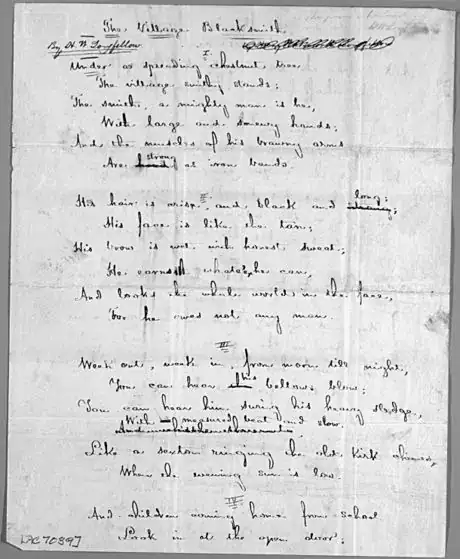 The Village Blacksmith.
By H. W. Longfellow.
I.
Under a spreading chestnut tree
The village smithy stands;
The smith, a mighty man is he,
With large and sinewy hands;
And the muscles of his brawny arms
Are strong as iron bands.
II
His hair is crisp, and black and long;
His face is like the tan;
His brow is wet with honest sweat;
He earns whate'er he can,
And looks the whole world in the face,
For he owes not any man.
III
Week out, week in, from morn till night,
You can hear his bellows blow;
You can hear him swing his heavy sledge,
With measured beat and slow.
Like a sexton ringing the old kirk chimes,
When the evening sun is low.
IV
And children coming home from school
Look in at the open door;